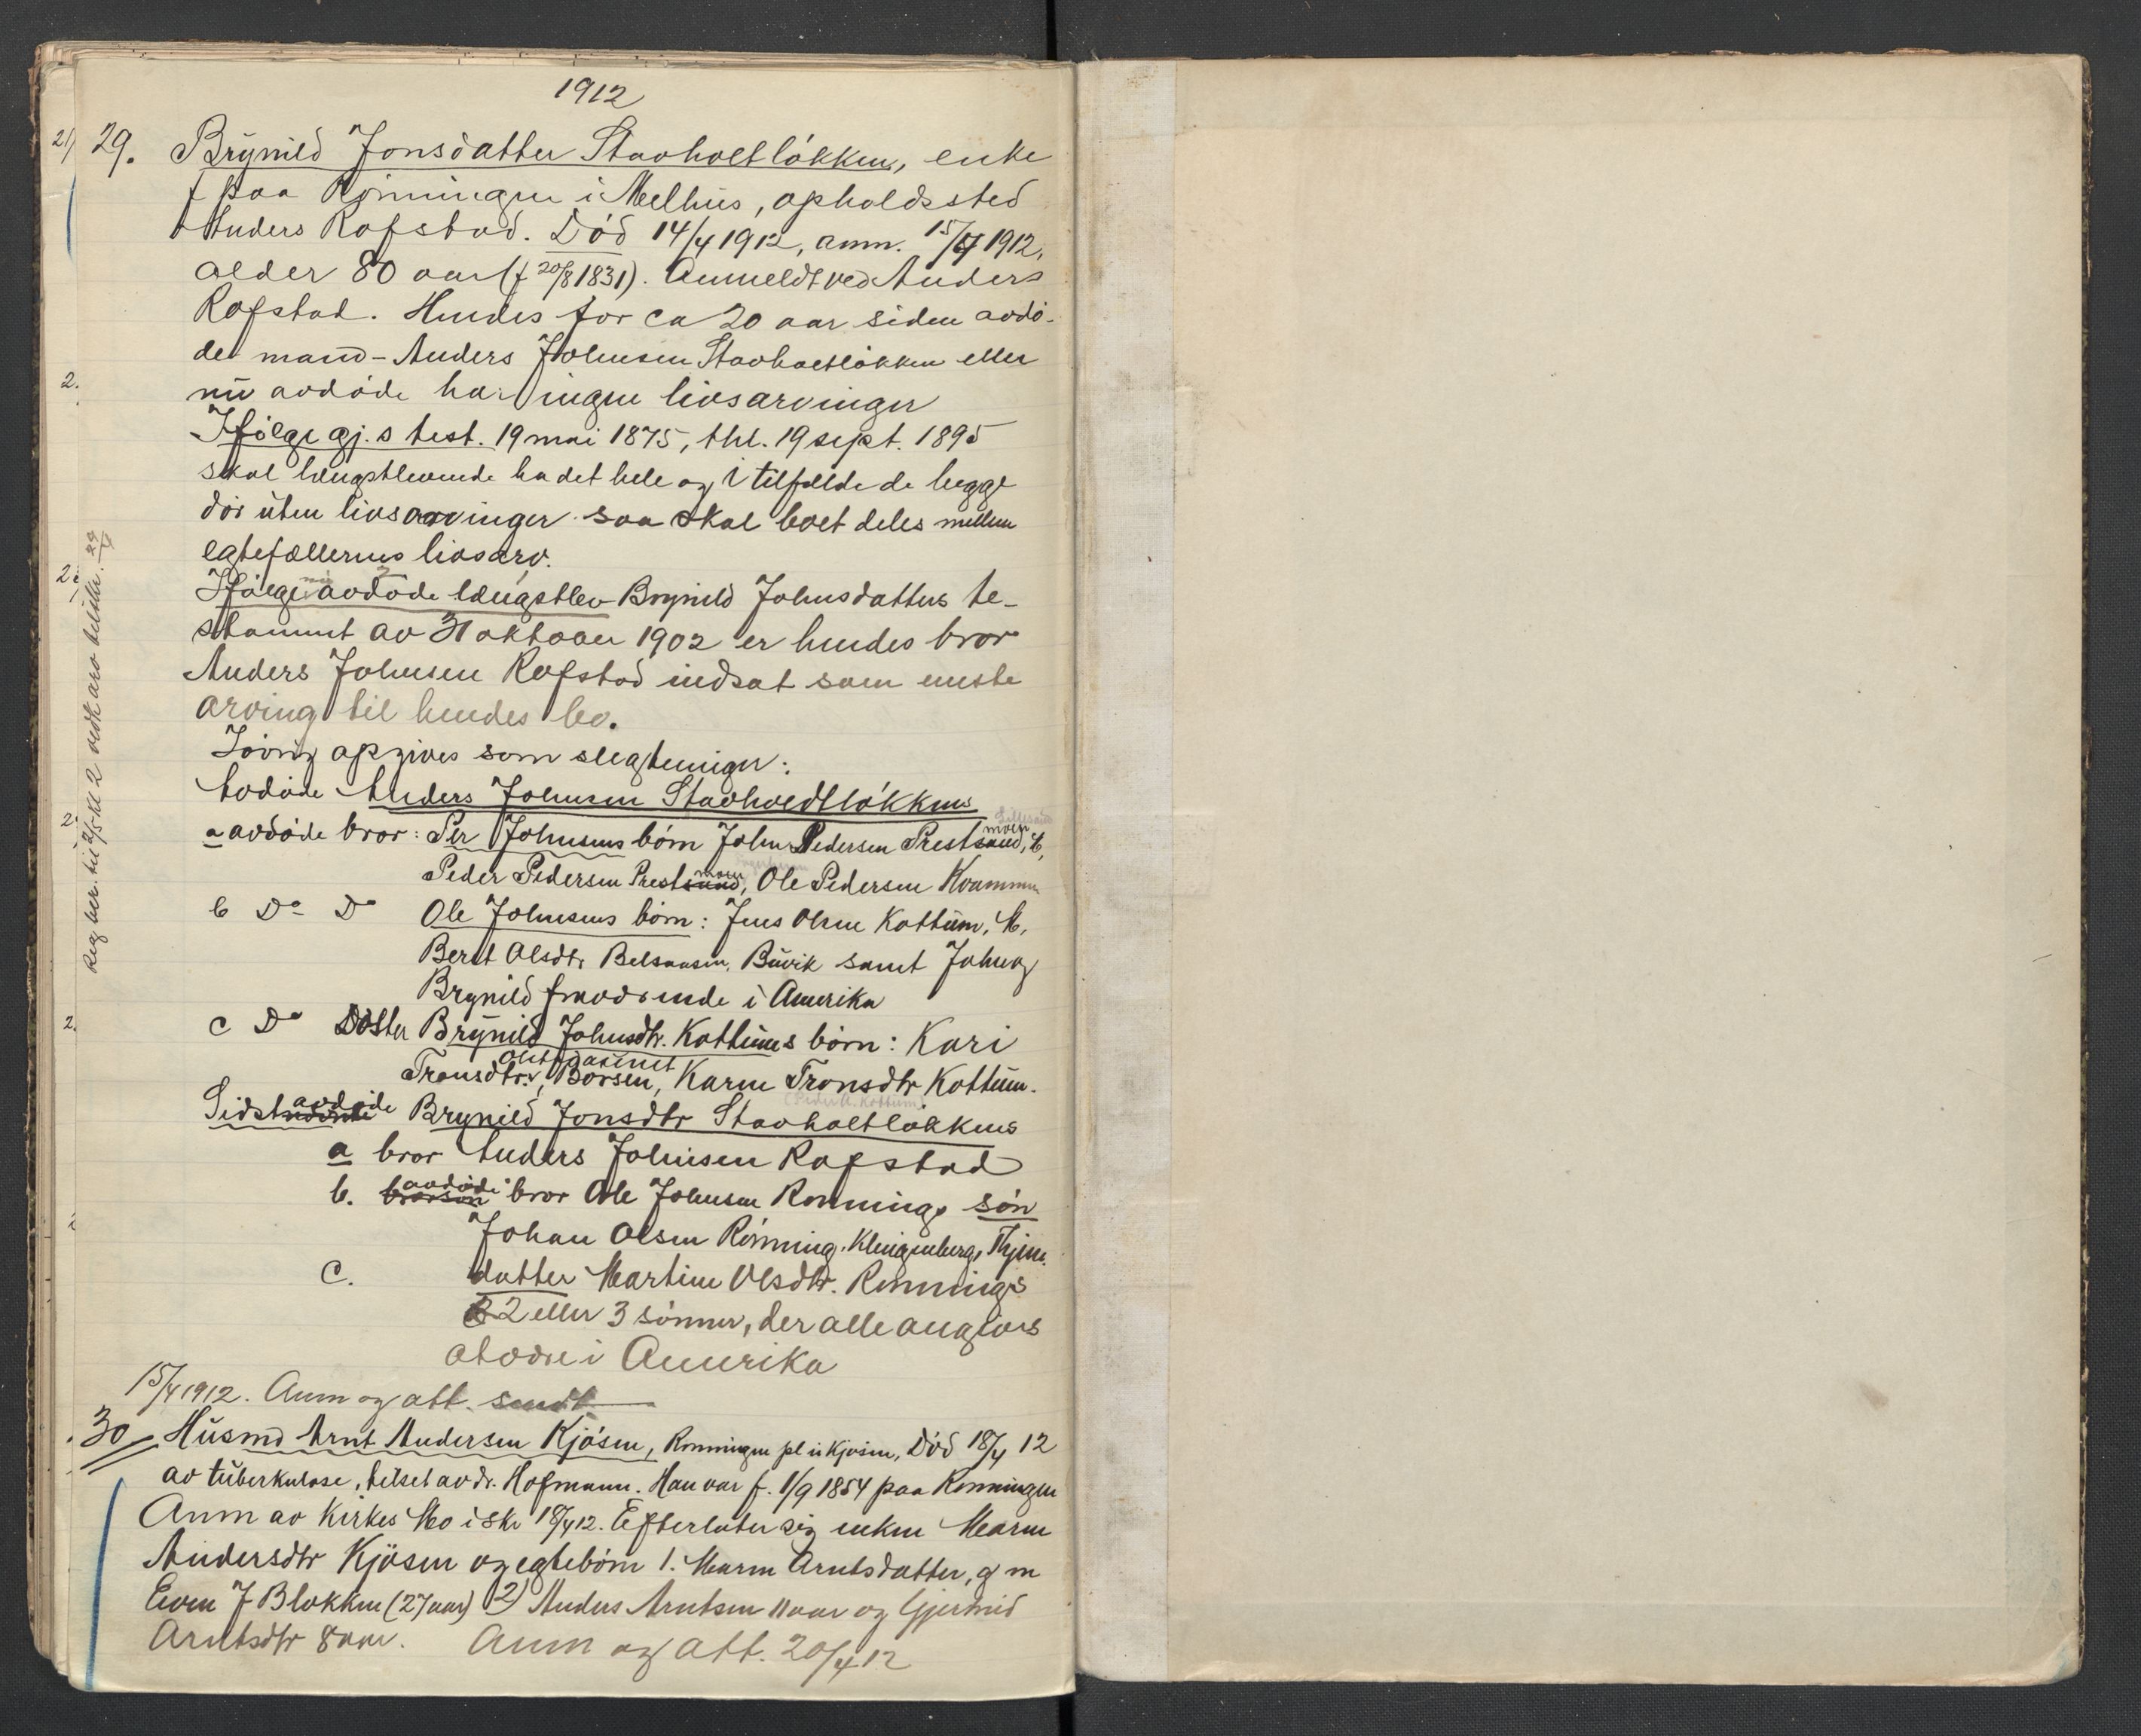 1912
29. Brynild Jonsdatter Stavholtløkken, enke
f paa Rønningen i Melhus, opholdssted
Anders Rofstad. Død 14/4 1912, anm. 15/4 1912,
alder 80 aar (f 20/8 1831). Anmeldt ved Anders
Rofstad. Hendes for ca 20 aar siden avdø-
de mand - Anders Johnsen Stavholtløkken eller
nu avdøde har ingen livsarvinger
Ifølge gj. s test. 19 mai 1875, thl. 19 sept. 1895
skal længstlevende ha det hele og i tilfælde de begge
dør uten livsarvinger saa skal boet deles mellem
egtefællernes livsarv.
Ifølge nu avdøde længstlev Brynild Johnsdatters te-
stament av 31 oktober 1902 er hendes bror
Anders Johnsen Rofstad indsat som eneste
arving til hendes bo.
Iøvrig opgives som slegtninger:
Avdøde Anders Johnsen Stavholdtløkkens
a avdøde bror: Per Johnsens børn John Pedersen Prestsand, moen M,
Peder Pedersen Prestsand, moen Ole Pedersen Kvammen
b Do Do Ole Johnsens børn: Jens Olsen Kottum, M,
Berit Olsdtr Belsaasen, Buvik samt John og
Brynild fraværende i Amerika
c Do Døster Brynild Johnsdtr. Kottums børn: Kari
Tronsdtr., Børsen, Karen Tronsdtr Kottum.
(Peder A. Kottum)
Sidst avdøde Brynild Jonsdtr Stavholtløkkens
a bror Anders Johnsen Rofstad
b. brorsøn avdøde bror Ole Johnsen Rønnings søn
Johan Olsen Rønning, Klingenberg, Thjem.
c. datter Martine Olsdtr. Rønnings
2 eller 3 sønner, der alle angives
at være i Amerika
15/4 1912. Anm og att. sendt
30 Husmd Arnt Andersen Kjøsen, Rønningen pl u Kjøsen, Død 18/4 12
av tuberkulose, tilset av dr. Hofmann. Han var f. 1/9 1854 paa Rønningen
Anm av Kirkes. Mo i skr 18/4 12. Efterlater sig enken Maren
Andersdtr Kjøsen og egtebørn 1. Maren Arntsdatter, g m
Even J Blokken (27 aar) 2) Anders Arntsen 11 aar og Gjertrud
Arntsdtr 8 aar. Anm og att. 20/4 12